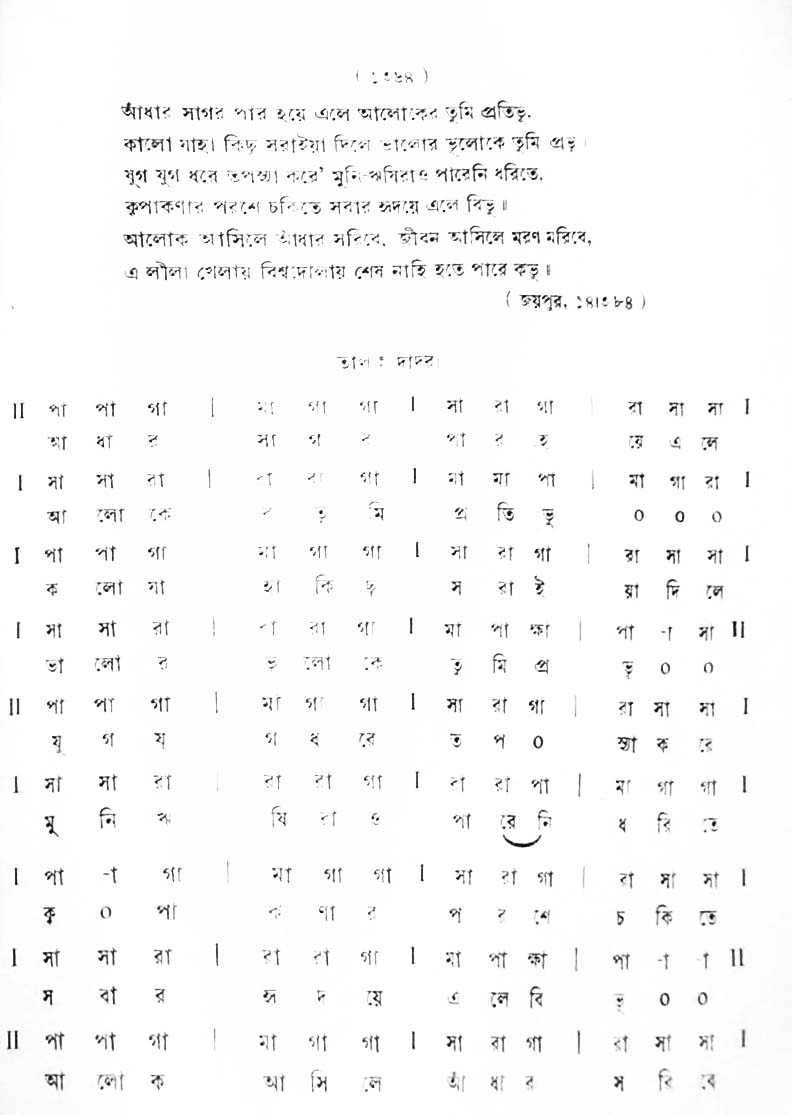 ( ১৩৬৪ )
আঁধার সাগর পার হয়ে এলে আলোকের তুমি প্রতিভূ,
কালো যাহা কিছু সরাইয়া দিলে ভালোর ভূলোকে তুমি প্রভূ ।
যুগ যুগ ধরে তপস্যা করে' মুনি-ঋষিরাও পারেনি ধরিতে,
কৃপাকণার পরশে চকিতে সবার হৃদয়ে এলে বিভূ ॥
আলোক আসিলে আঁধার সরিবে, জীবন আসিলে মরণ মরিবে,
এ লীলা খেলায় বিশ্বদোলায় শেষ নাহি হতে পারে কভূ ॥
( জয়পুর, ১৪।৩৮৪ )
তাল : দাদরা
II পা পা গা | মা গা গা I সা রা গা | রা সা সা I
আ ধা র সা গ র পা র হ য়ে এ লে
I সা সা রা | রা রা গা I মা মা পা | মা গা রা I
আ লো কে র তু মি প্র তি ভূ ০ ০ ০
I পা পা গা মা গা গা I সা রা গা | রা সা সা I
ক লো যা হা কি ছু স রা ই য়া দি লে
I সা সা রা | রা রা গা I মা পা ক্ষা | পা -া সা II
ভা লো র ভূ লো কে তু মি প্র ভূ ০ ০
II পা পা গা | মা গা গা I সা রা গা | রা সা সা I
যু গ যু গ ধ রে ত প ০ স্যা ক রে
I সা সা রা | রা রা গা I রা রা পা | মা গা গা I
মু নি ঋ ষি রা ও পা রে নি ধ রি তে
I পা -া গা | মা গা গা I সা রা গা | রা সা সা I
কৃ ০ পা ক ণা র প র শে চ কি তে
I সা সা রা | রা রা গা I মা পা ক্ষা | পা -া -া II
স বা র হৃ দ য়ে এ লে বি ভূ ০ ০
II পা পা গা | মা গা গা I সা রা গা | রা সা সা I
আ লো ক আ সি লে আঁ ধা র স রি বে